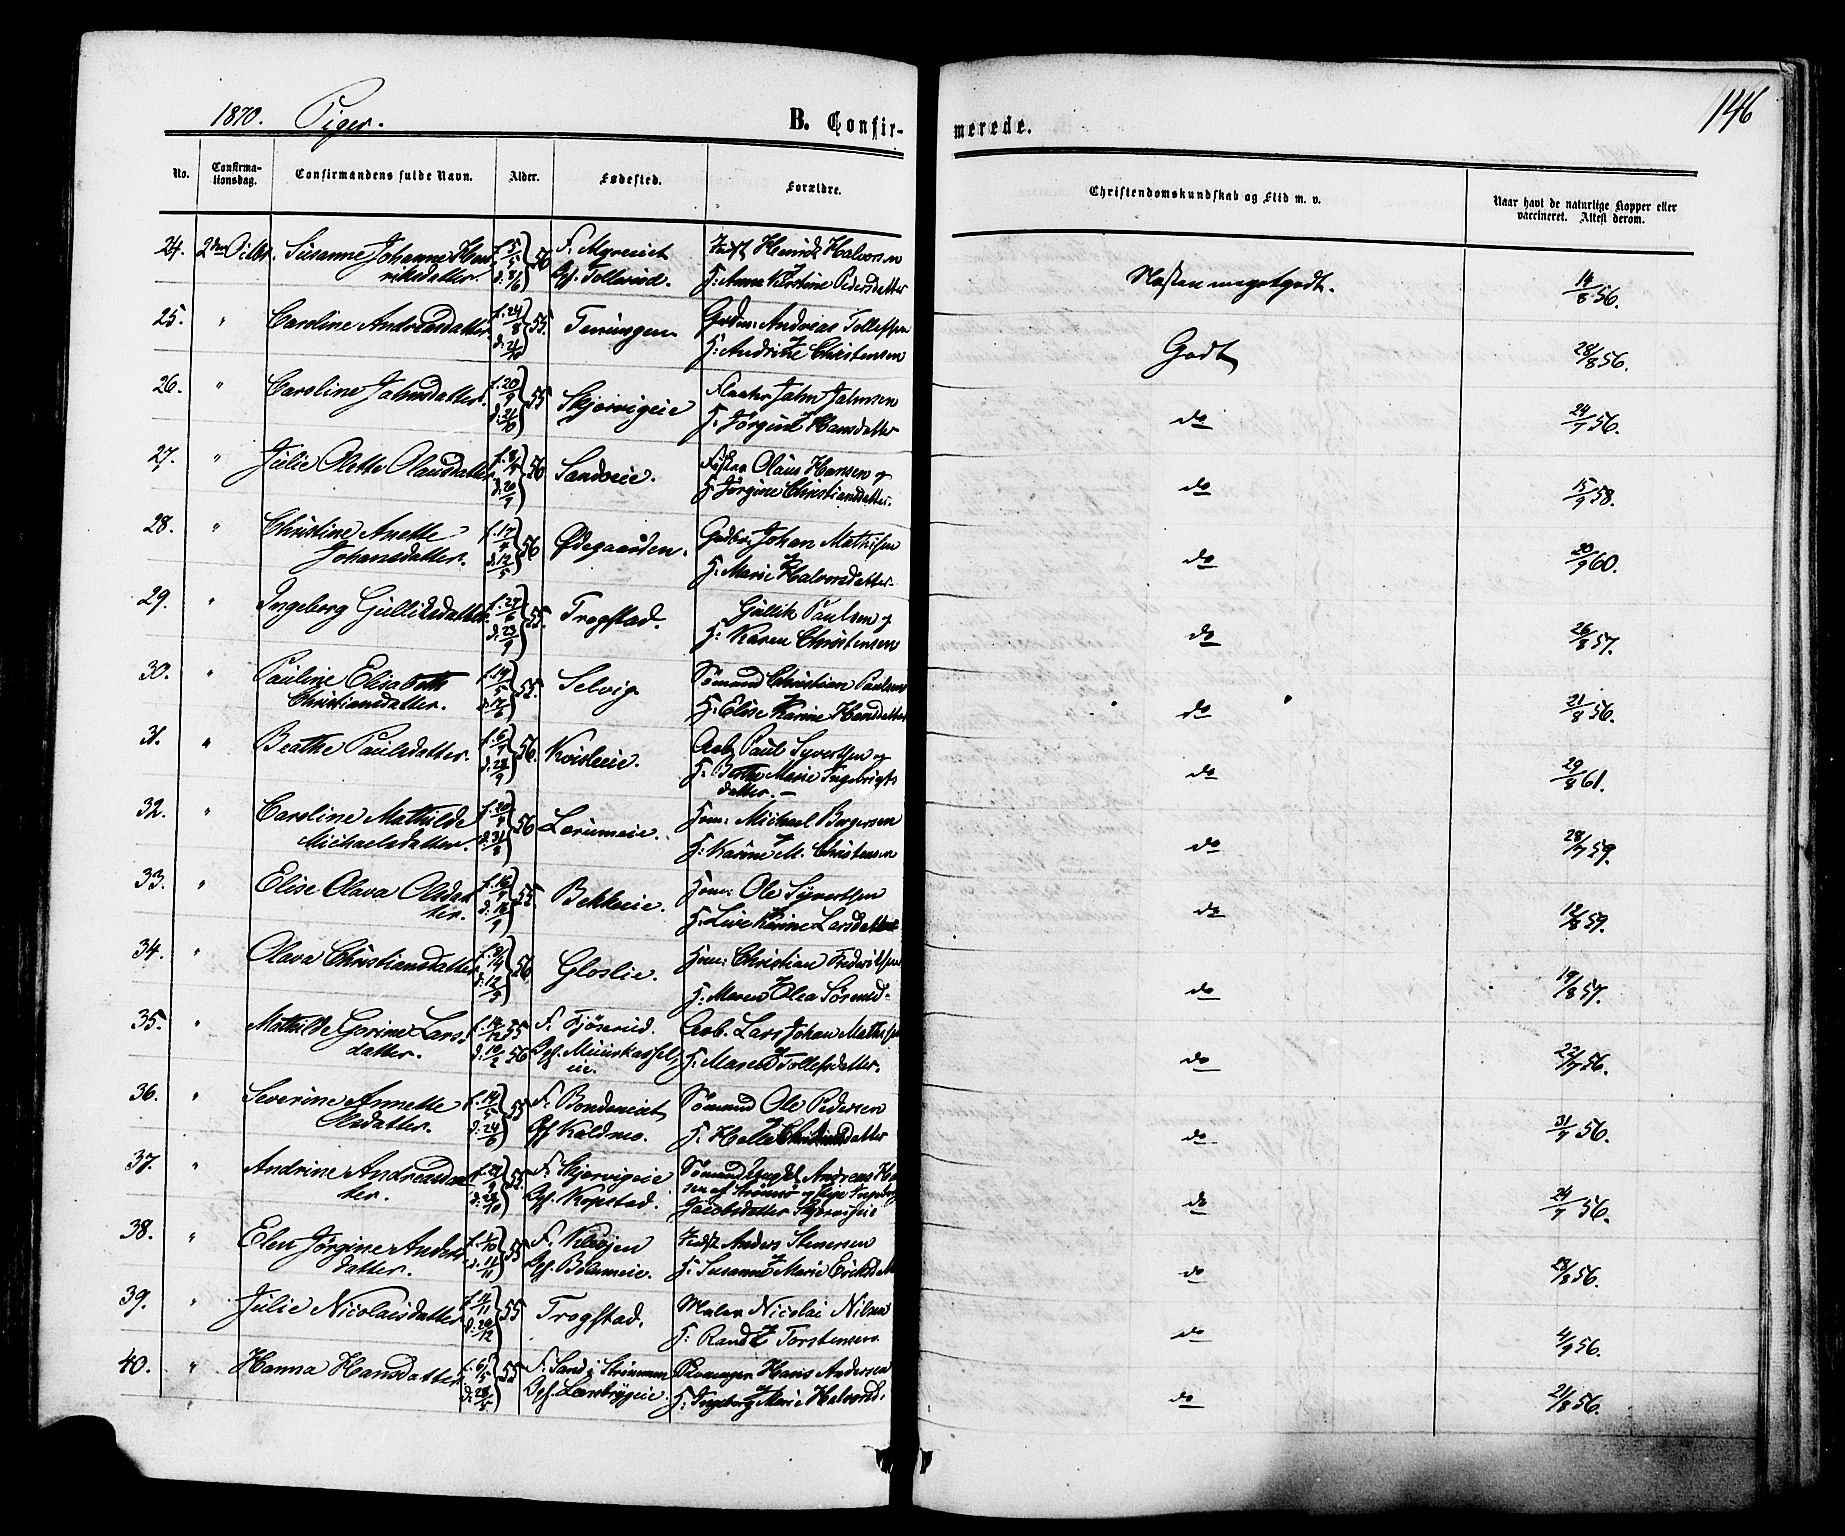 1870. Piger.
B. Confir-
merede.
146
No.
Confirma-
tionsdag.
Confirmandens fulde Navn.
Alder.
Fødested.
Forældre.
Christendomskundskab og Flid m. v.
Naar havt de naturlige Kopper eller
vaccineret. Attest derom.
24. 2den Octbr. Susanne Johanne Hen
riksdatter. 56 F. Myreiet
Opf. Tollerød. Henrik Halvorsen
H: Anne Kirstine Pedersdatter Næsten megetgodt. 14/8 56.
25. " Caroline Andreasdatter f. 24/8 55. Tenningen Gadm: Andreas Tollefsen
H: Andrine Christensen Godt 28/8 56.
26. " Caroline Jahnsdatter f. 20/9 d: 21/10 55 Skjervigeie Jahn Jahnsen
H: Jørgine Hansdatter do 24/7 56.
27. " Julie Olette Olausdatter 56 Sandseie. Olaus Hansen og
H: Jørgine Christiansdatter. do 15/9 58.
28. " Christine Anette
Johansdatter. f. 17/4 d: 12/5 56 Ødegaarden. Johan Mathisen
H: Marie Halvorsdatter. do 20/9 60.
29. " Ingeborg Gulliksdatter. d: 23/9 55. Trogstad. Gullik Paulsen og
H: Karen Christensen do 26/8 57.
30. " Pauline Elisabeth
Christiansdatter. f. 19/5 d: 17/6 55. Selvig Sømand Christian Paulsen
H: Elise Karine Hansdatter do 21/8 56.
31. " Beathe Paulsdatter. 56. Kvisleeie. Arb. Paul Syvertsen og
H: Berthe Marie Ingebrigts
datter. — do 29/8 61.
32. " Caroline Mathilde
Michaelsdatter. 56 Lørumeie. Hm: Michael Borgersen
H: Karine M. Christensen do 28/7 59.
33. " Elise Olava Olsdat
ter. 55 Bekkeie. Hm: Ole Syvertsen
H: Live Karine Larsdatter do 12/8 59.
34. " Olava Christiansdatter 56 Gloslie. Hm: Christian Frederiksen
H: Maren Olea Sørensd. do 19/8 57.
35. " Mathilde Gorine Lars
datter. f. 14/12 55 d: 10/2 56 F. Fjøserud.
Opf. Muurkassel
eie. Arb. Lars Johan Mathisen
H: Maren Tollefsdatter. do 22/7 56.
36. " Severine Annette
Olsdatter. f. 14/5 d: 24/6 55 F. Bondeeiet
Opf. Kaldnes. Sømand Ole Pedersen
H: Helle Christensdatter do 31/7 56.
37. " Andrine Andreasdat
ter. 55. F. Skjervigeie
Opf. Kopstad. Sømand Ungkl. Andreas Han
sen af Strømsø og Pige Ingeborg
Jacobsdatter Skjervigeie do 24/7 56.
38. " Elen Jørgine Anders
datter. 55 F. Klevjen
Opf. Bommeie. Anders Stenersen
H: Susanne Marie Eriksd. do 28/8 56.
39. " Julie Nicolaisdatter d: 29/12 55 Trogstad. Maler Nicolai Nilsen
H: Randi Torstensen do 4/9 56.
40. " Hanna Hansdatter 55 F. Sand i Strømmen
Opf. Lensbrygeie. Hans Andersen
H: Ingeborg Marie Halvorsd. do 21/8 56.